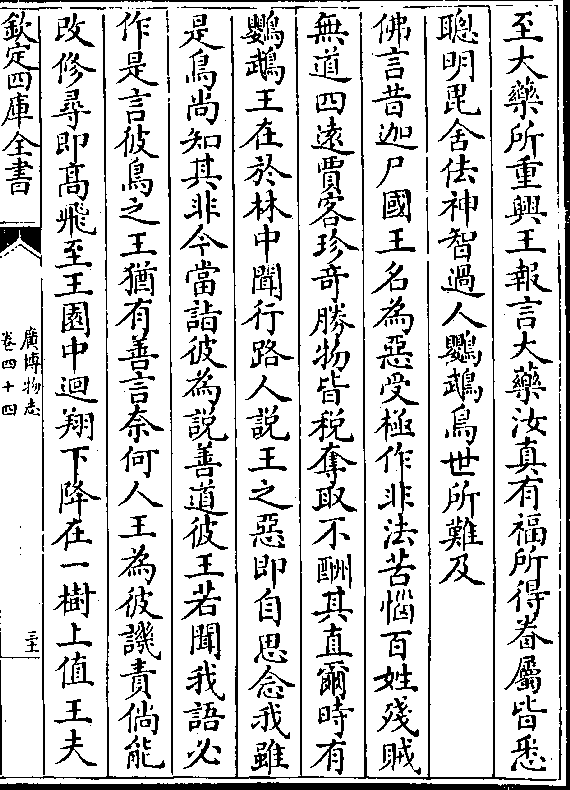 至大藥所重興王報言大藥汝真有福所得眷屬皆悉
聰明毘舍佉神智過人鸚鵡鳥世所難及
佛言昔迦尸國王名為惡受極作非法苦惱百姓殘賊
無道四遠賈客珍奇勝物皆稅奪取不酬其直爾時有
鸚鵡王在於林中聞行路人説王之惡即自思念我雖
是鳥尚知其非今當詣彼為説善道彼王若聞我語必
作是言彼鳥之王猶有善言奈何人王為彼譏責倘能
改修尋即高飛至王園中迴翔下降在一樹上值王夫
欽定四庫全書
廣博物志
卷四十四